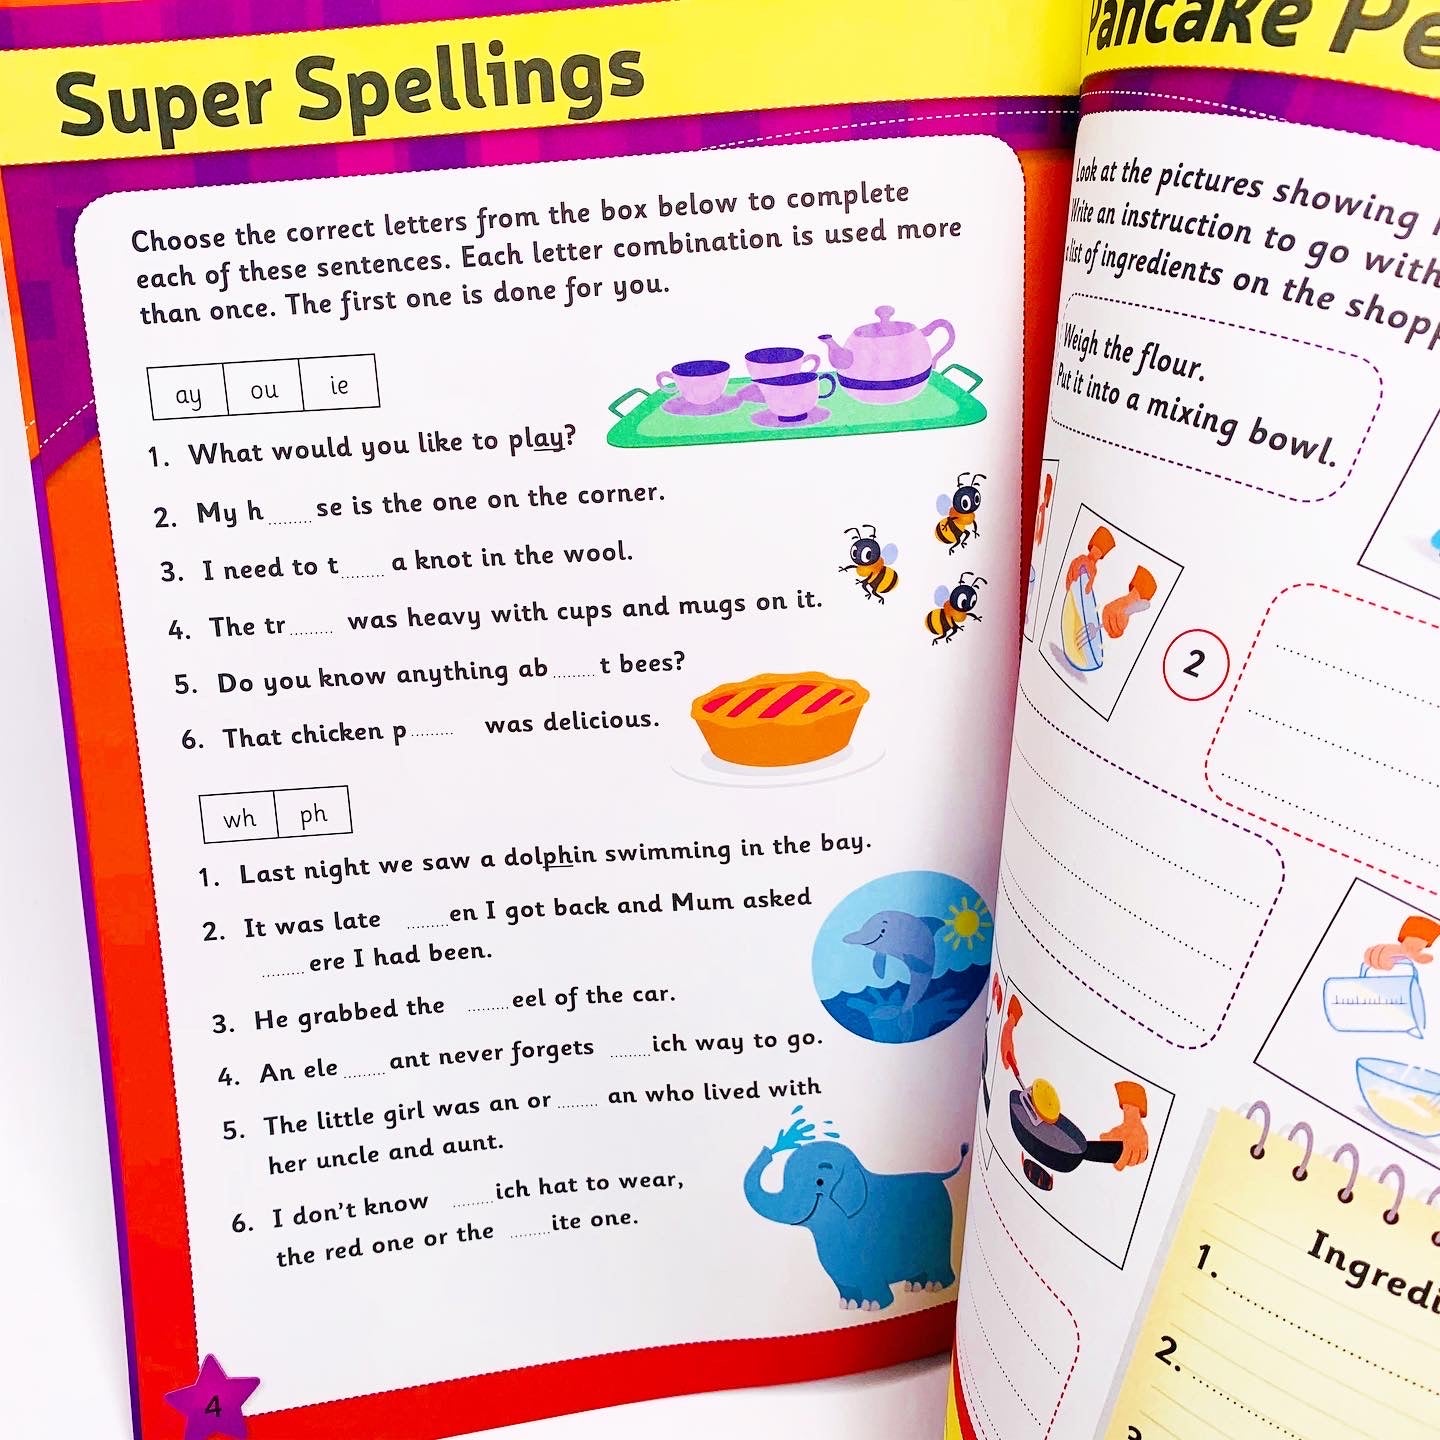 Super Spellings
Choose the correct letters from the box below to complete
each of these sentences. Each letter combination is used more
than once. The first one is done for you.
ay ou ie
1. What would you like to play?
2. My h........ se is the one on the corner.
3. I need to t........ a knot in the wool.
4. The tr........ was heavy with cups and mugs on it.
5. Do you know anything ab........ t bees?
6. That chicken p........ was delicious.
wh ph
1. Last night we saw a dolphin swimming in the bay.
2. It was late ........en I got back and Mum asked
........ ere I had been.
3. He grabbed the ........eel of the car.
4. An ele........ ant never forgets ........ich way to go.
5. The little girl was an or........ an who lived with
her uncle and aunt.
6. I don't know ........ich hat to wear,
the red one or the ........ite one.
4
Pancake
Look at the pictures showing
Write an instruction to go with
list of ingredients on the
Weigh the flour.
Put it into a mixing bowl.
2
1.
2.